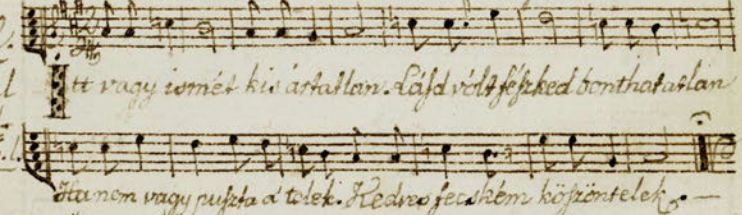 Itt vagy ismét kis ártatlan. Láſd vólt féſzked bonthatatlan
Ha nem vagy puſzta a' telek. Kedves fecském köſzöntelek.